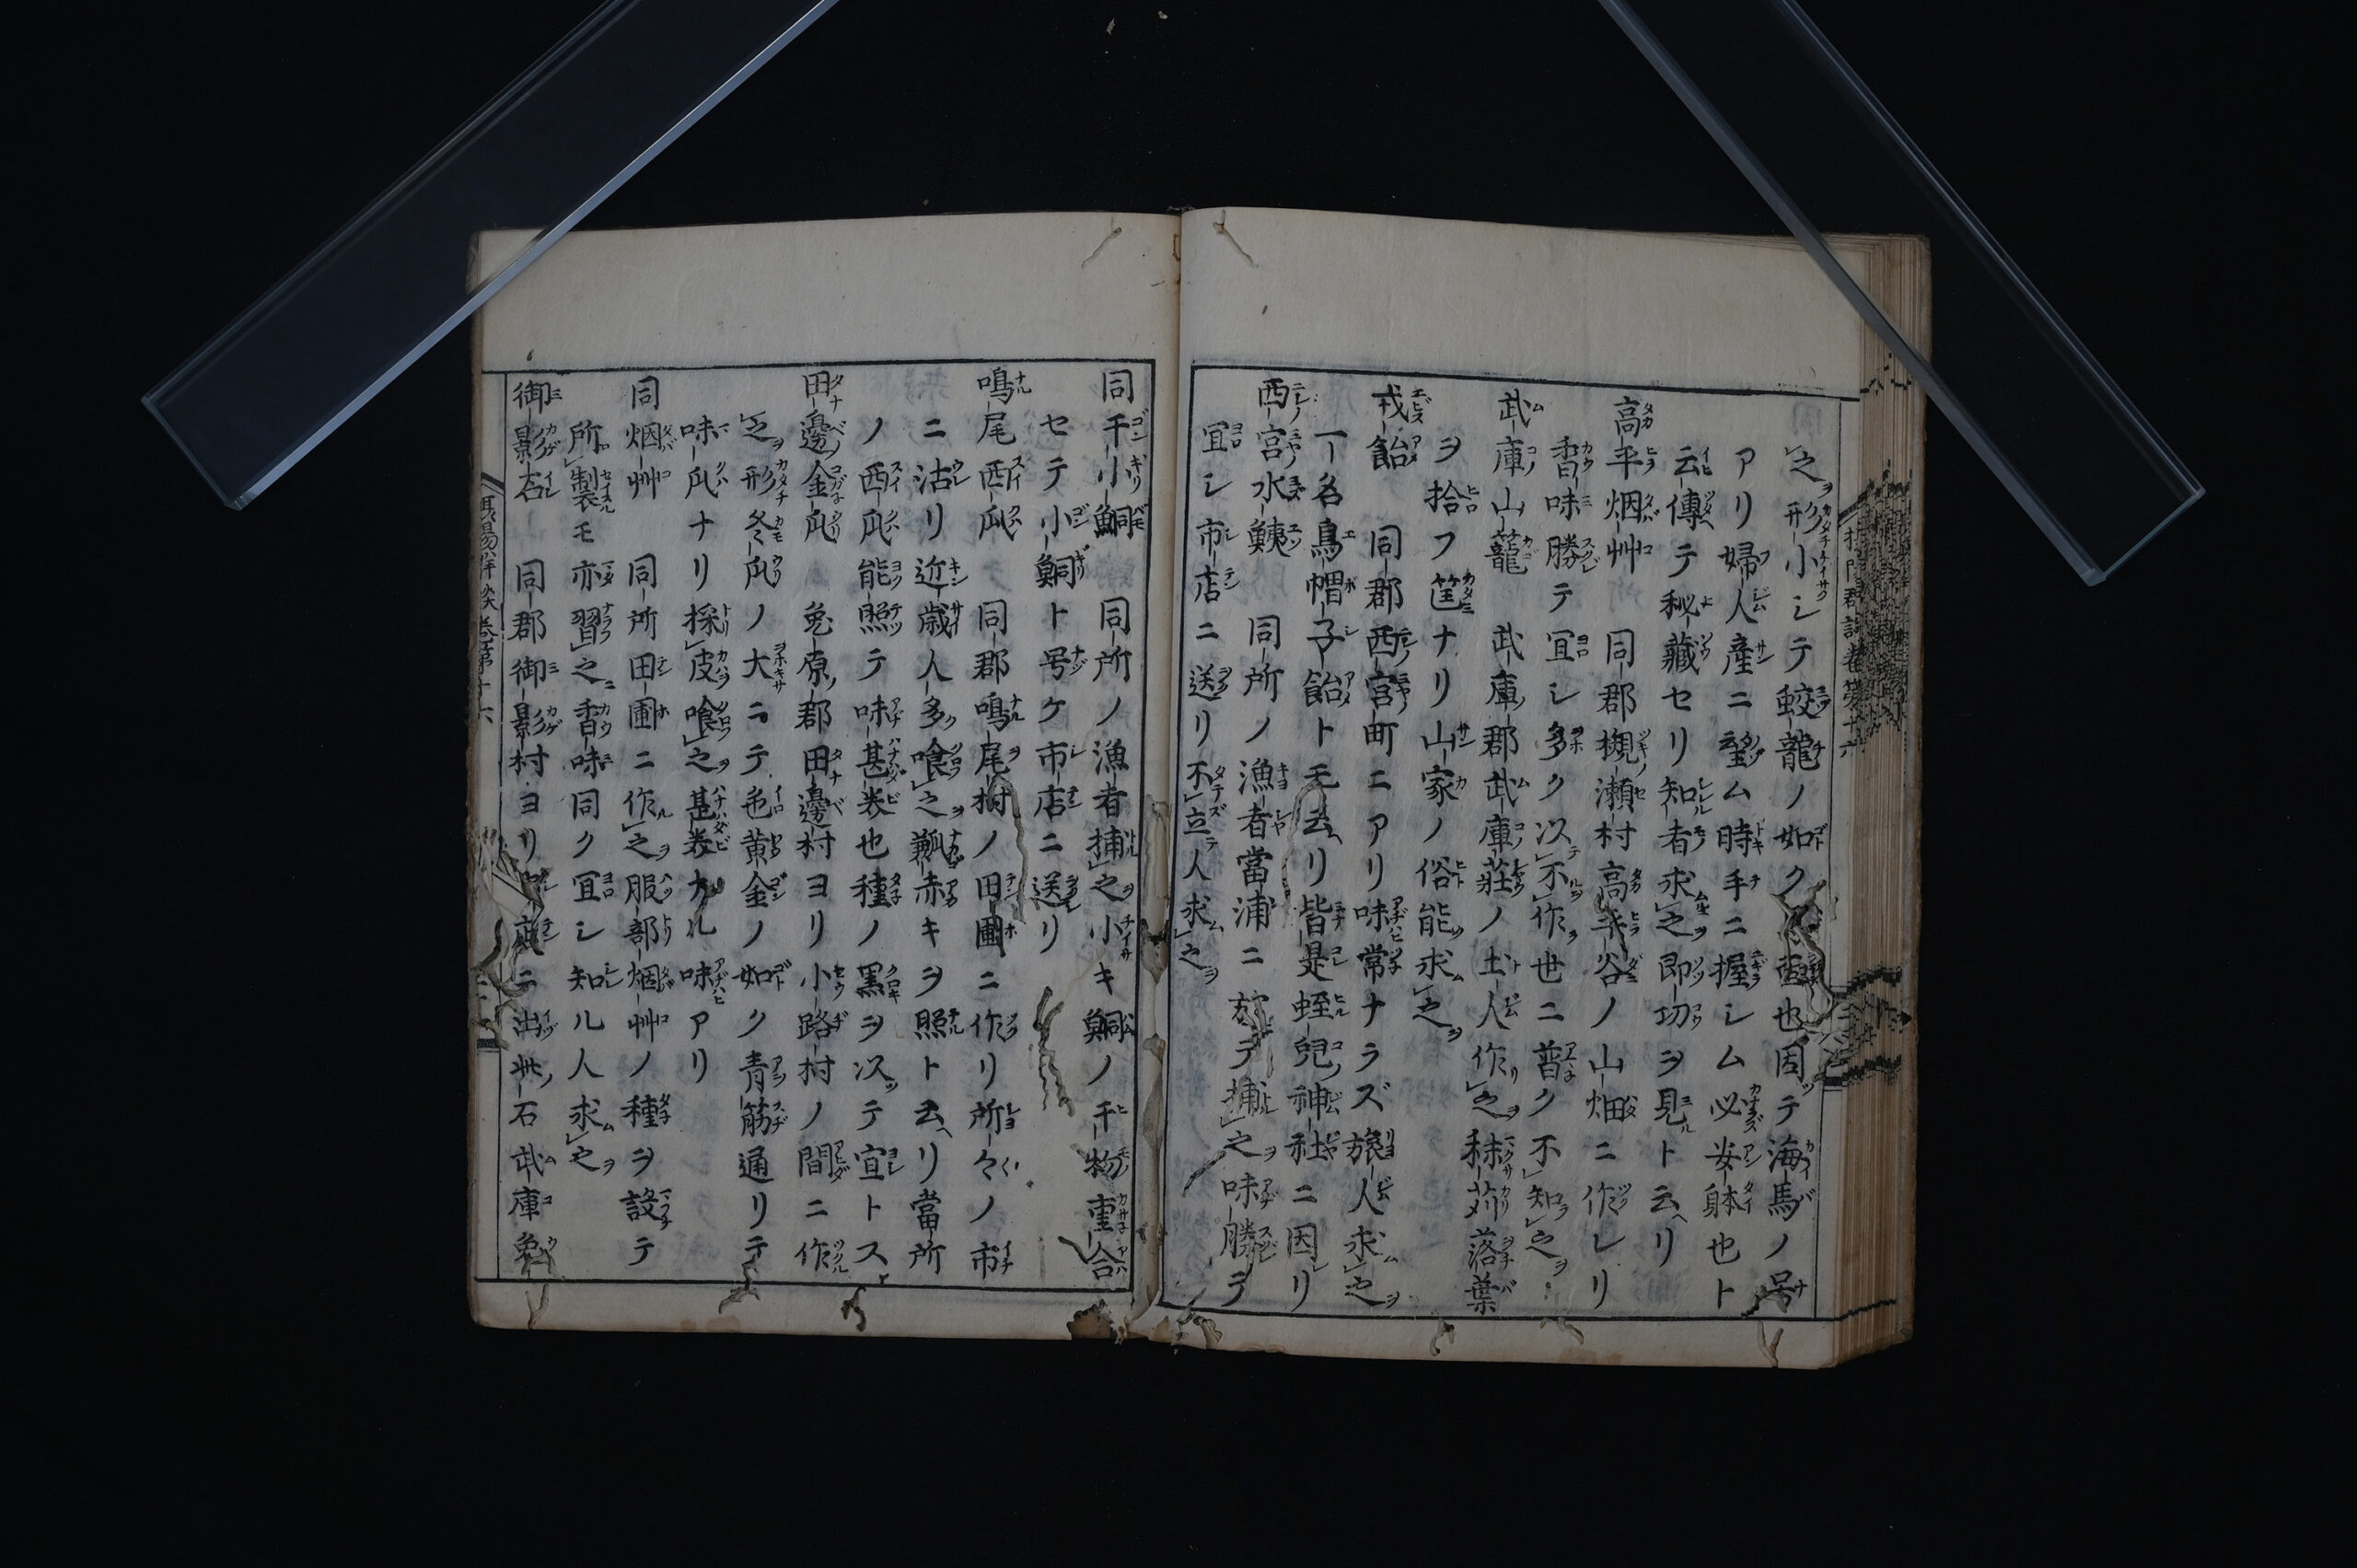 之形小シテ蛟龍ノ如ク也因テ海馬ノ号
アリ婦人産ニ望ム時手ニ握シム必安躰也ト
云傳テ秘藏セリ知者求之即功ヲ見ト云リ
高平烟艸 同郡槻瀬村高平谷ノ山畑ニ作レリ
香味勝テ宜シ多ク以不作世ニ普ク不知之
武庫山蘢 武庫郡武庫莊ノ土人作之秣苅落葉
ヲ拾フ筐ナリ山家ノ俗能求之
戎飴 同郡西宮町ニアリ味常ナラズ旅人求之
一名烏帽子飴ト毛云リ皆是蛭兒神社ニ因リ
西宮水鮧 同所ノ漁者當浦ニ於テ捕之味勝テ
宜シ市店ニ送リ不立人求之
同干小鯛 同所ノ漁者捕之小キ鯛ノ干物重合
セテ小鯛ト号ケ市店ニ送リ
鳴尾西瓜 同郡鳴尾村ノ田圃ニ作リ所々ノ市
ニ沽リ近歳人多喰之瓤赤キヲ照ト云リ當所
ノ西瓜能照テ味甚美也種ノ黒ヲ以テ宜トス
田邊金瓜 兎原郡田邊村ヨリ小路村ノ間ニ作
之形冬瓜ノ大ニテ色黄金ノ如ク青筋通リテ
味瓜ナリ採皮喰之甚美ナル味アリ
同烟艸 同所田圃ニ作之服部烟艸ノ種ヲ設テ
所製モ亦習之香味同ク宜シ知ル人求之
御影石 同郡御影村ヨリ ニ出此石武庫兔